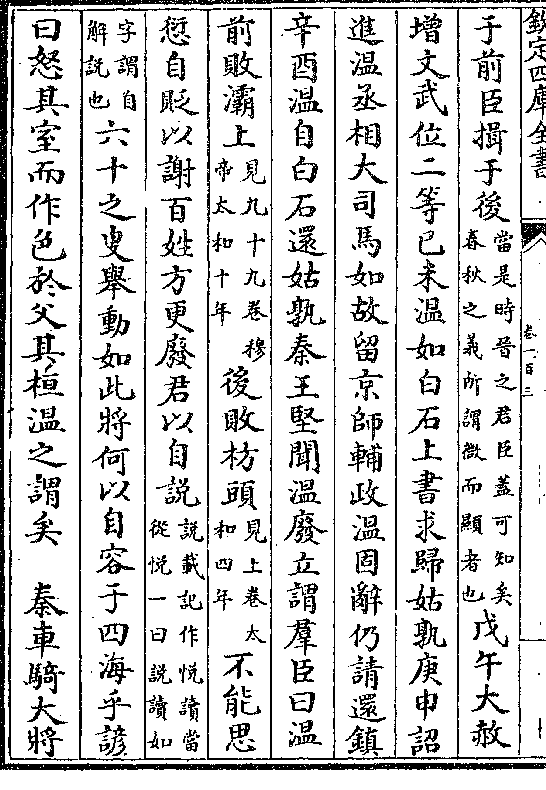 欽定四庫全書
卷一百三
于前臣揖于後當是時晉之君臣蓋可知矣春秋之義所謂微而顯者也戊午大赦
增文武位二等己未温如白石上書求歸姑孰庚申詔
進温丞相大司馬如故留京師輔政温固辭仍請還鎮
辛酉温自白石還姑孰秦王堅聞温廢立謂羣臣曰温
前敗灞上見九十九卷穆帝太和十年後敗枋頭見上卷太和四年不能思
愆自貶以謝百姓方更廢君以自説説載記作悦讀當從悦一曰説讀如
字謂自解説也六十之叟舉動如此將何以自容于四海乎諺
曰怒其室而作色於父其桓温之謂矣 秦車騎大將